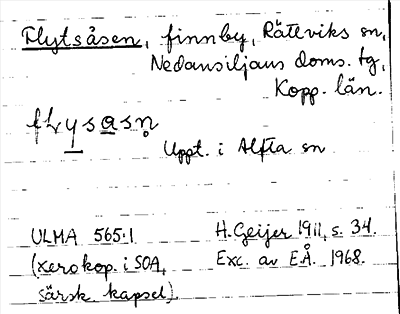 Flytsåsen, finnby, Rättviks sn,
Nedansiljans doms. tg,
Kopp. län.
Uppt. i Alfta sn
ULMA 565:1 H. Geijer 1911, s. 34.
(xerokop. i SOA, Exc. av E.Å. 1968.
särsk. kapsel).